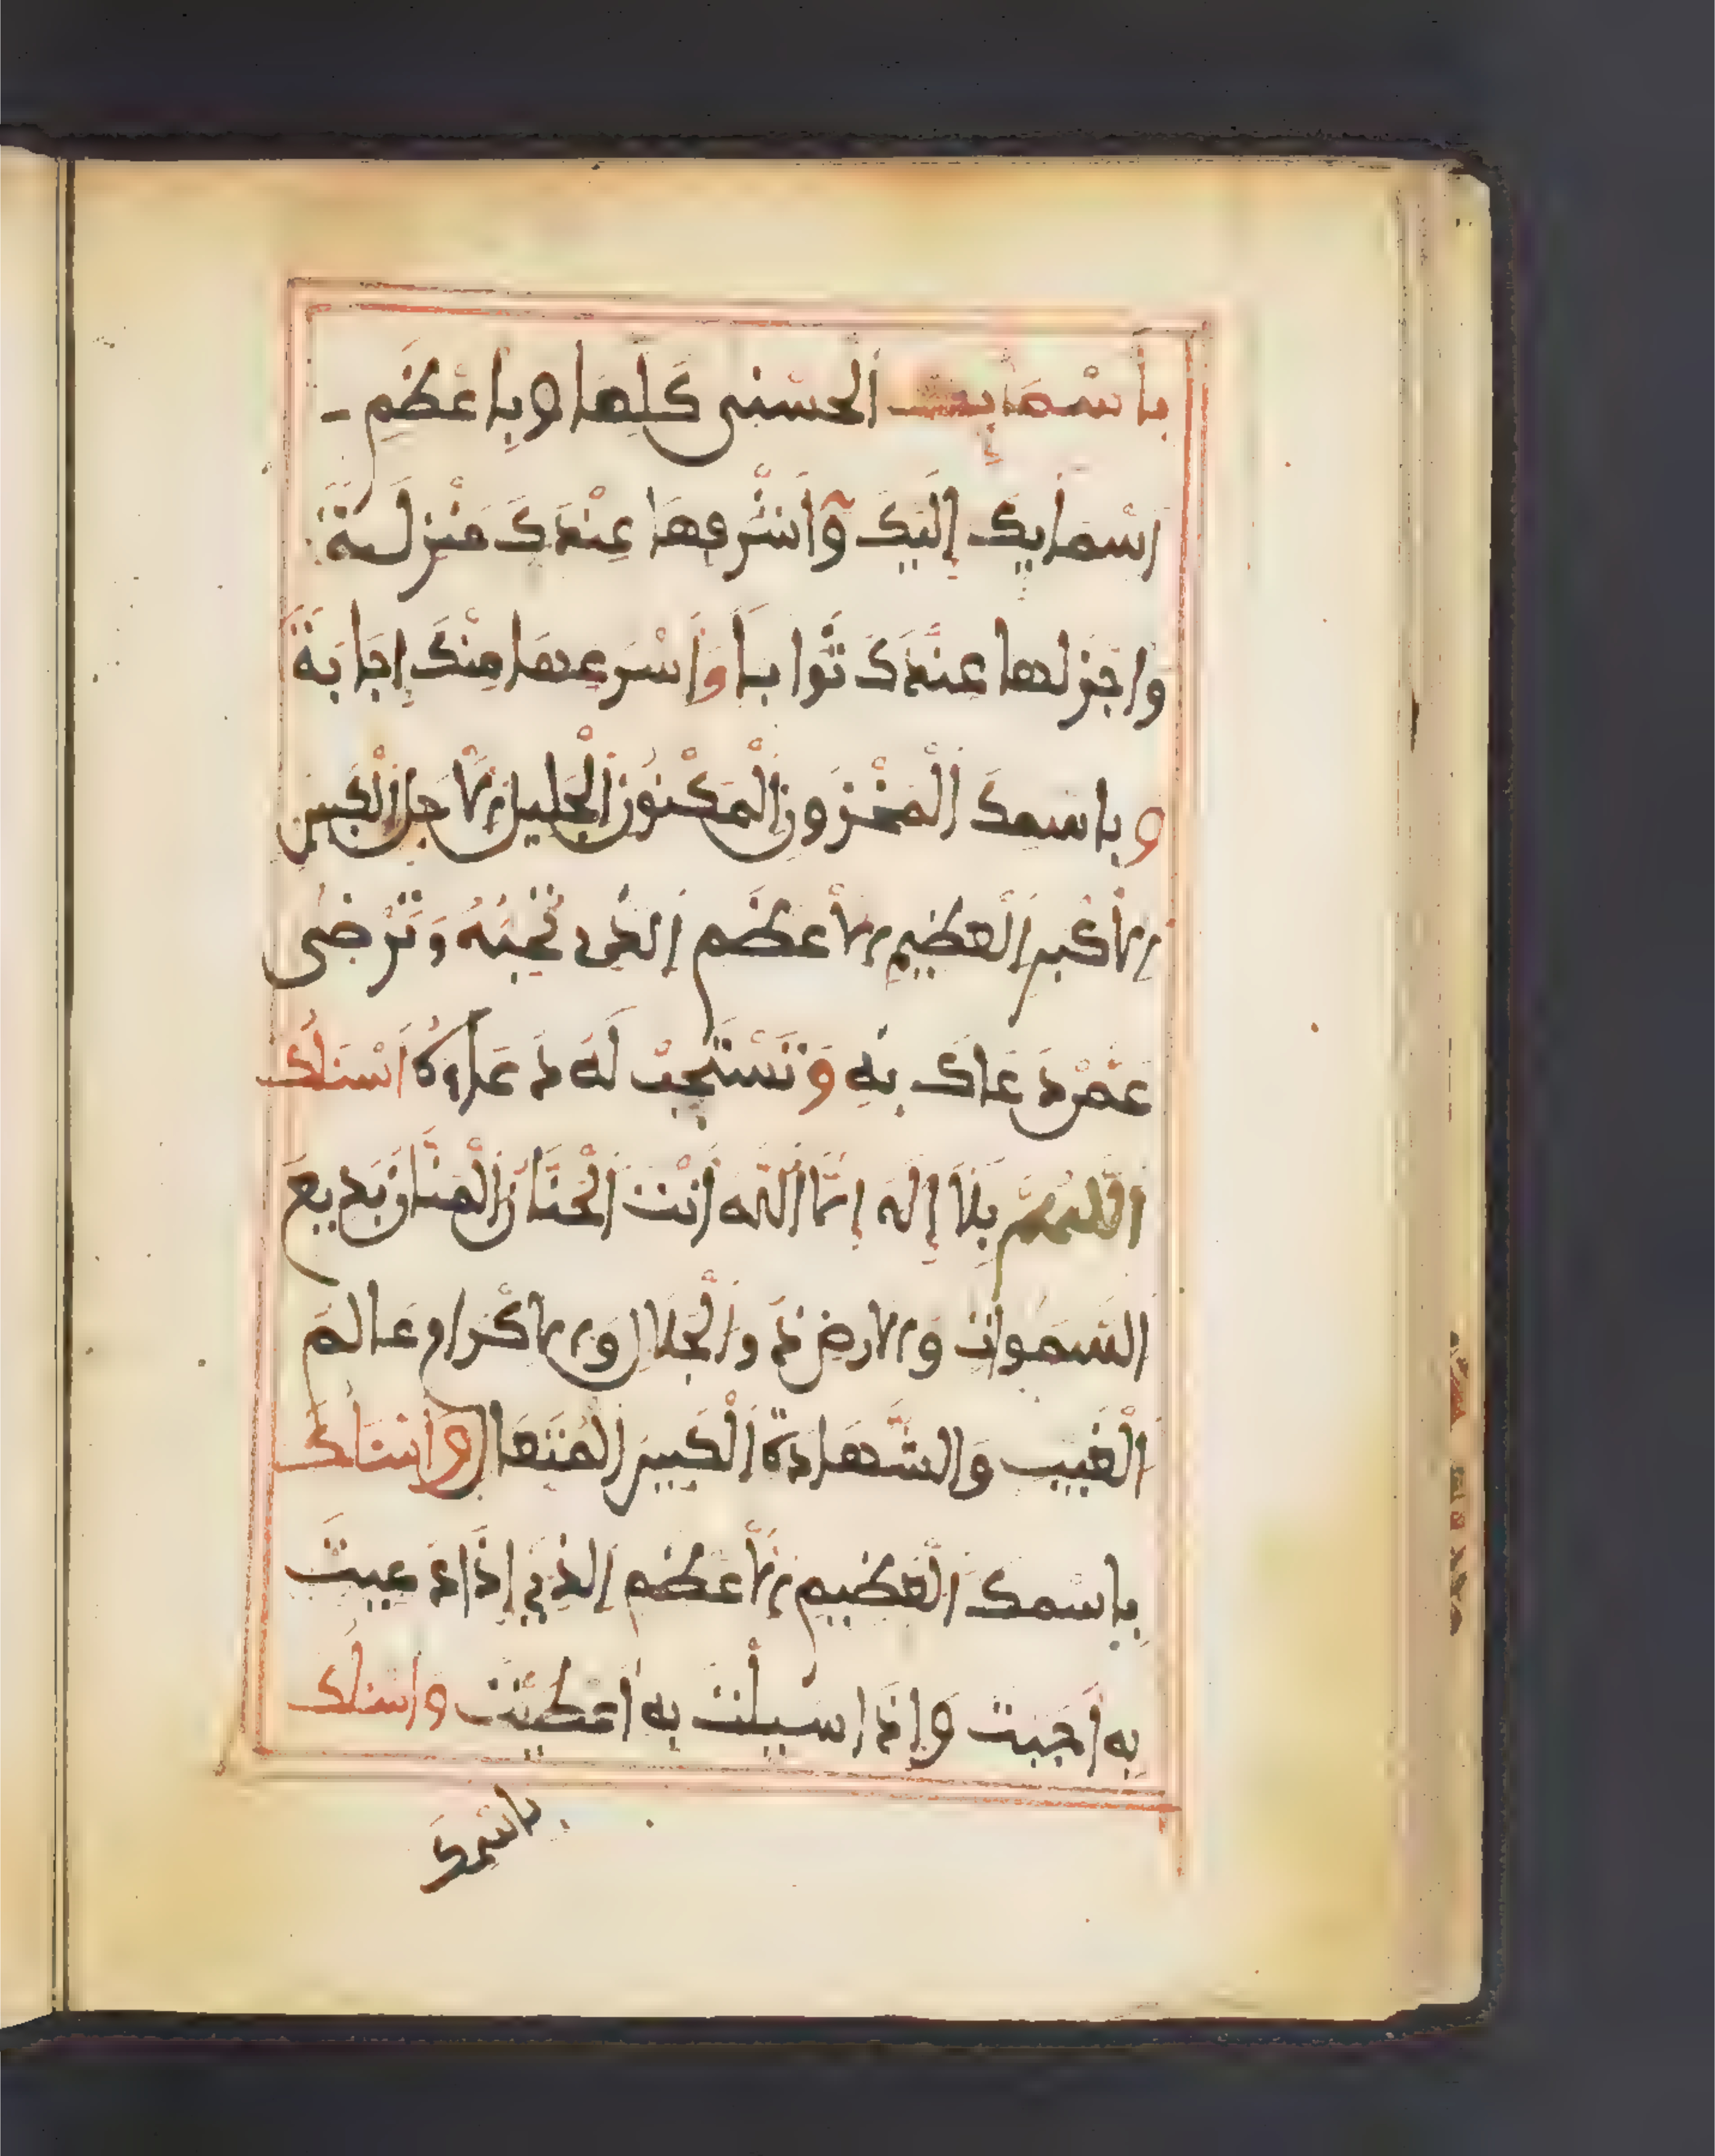 بأسمايك الحسنى كلها وبأعظم
اسمايك إليك وأشرفها عندك منزلة
واجزلها عندك ثوابا وأسرعها منك إجابة
وباسمك المخزون المكنون الجليل الأجل الكبير
الأكبر العظيم الأعظم الذي تحبه وترضى
عمن دعاك به وتستجب له دعاءه أسئلك
اللهم بلا إله إلا الله أنت الحنان المنان بديع
السموات والارض ذو الجلال والاكرام عالم
الغيب والشهادة الكبير المتعال وأسئلك
باسمك العظيم الأعظم الذي إذا دعيت
به أجبت وإذا سيلت به أعطيت واسئلك
باسمك